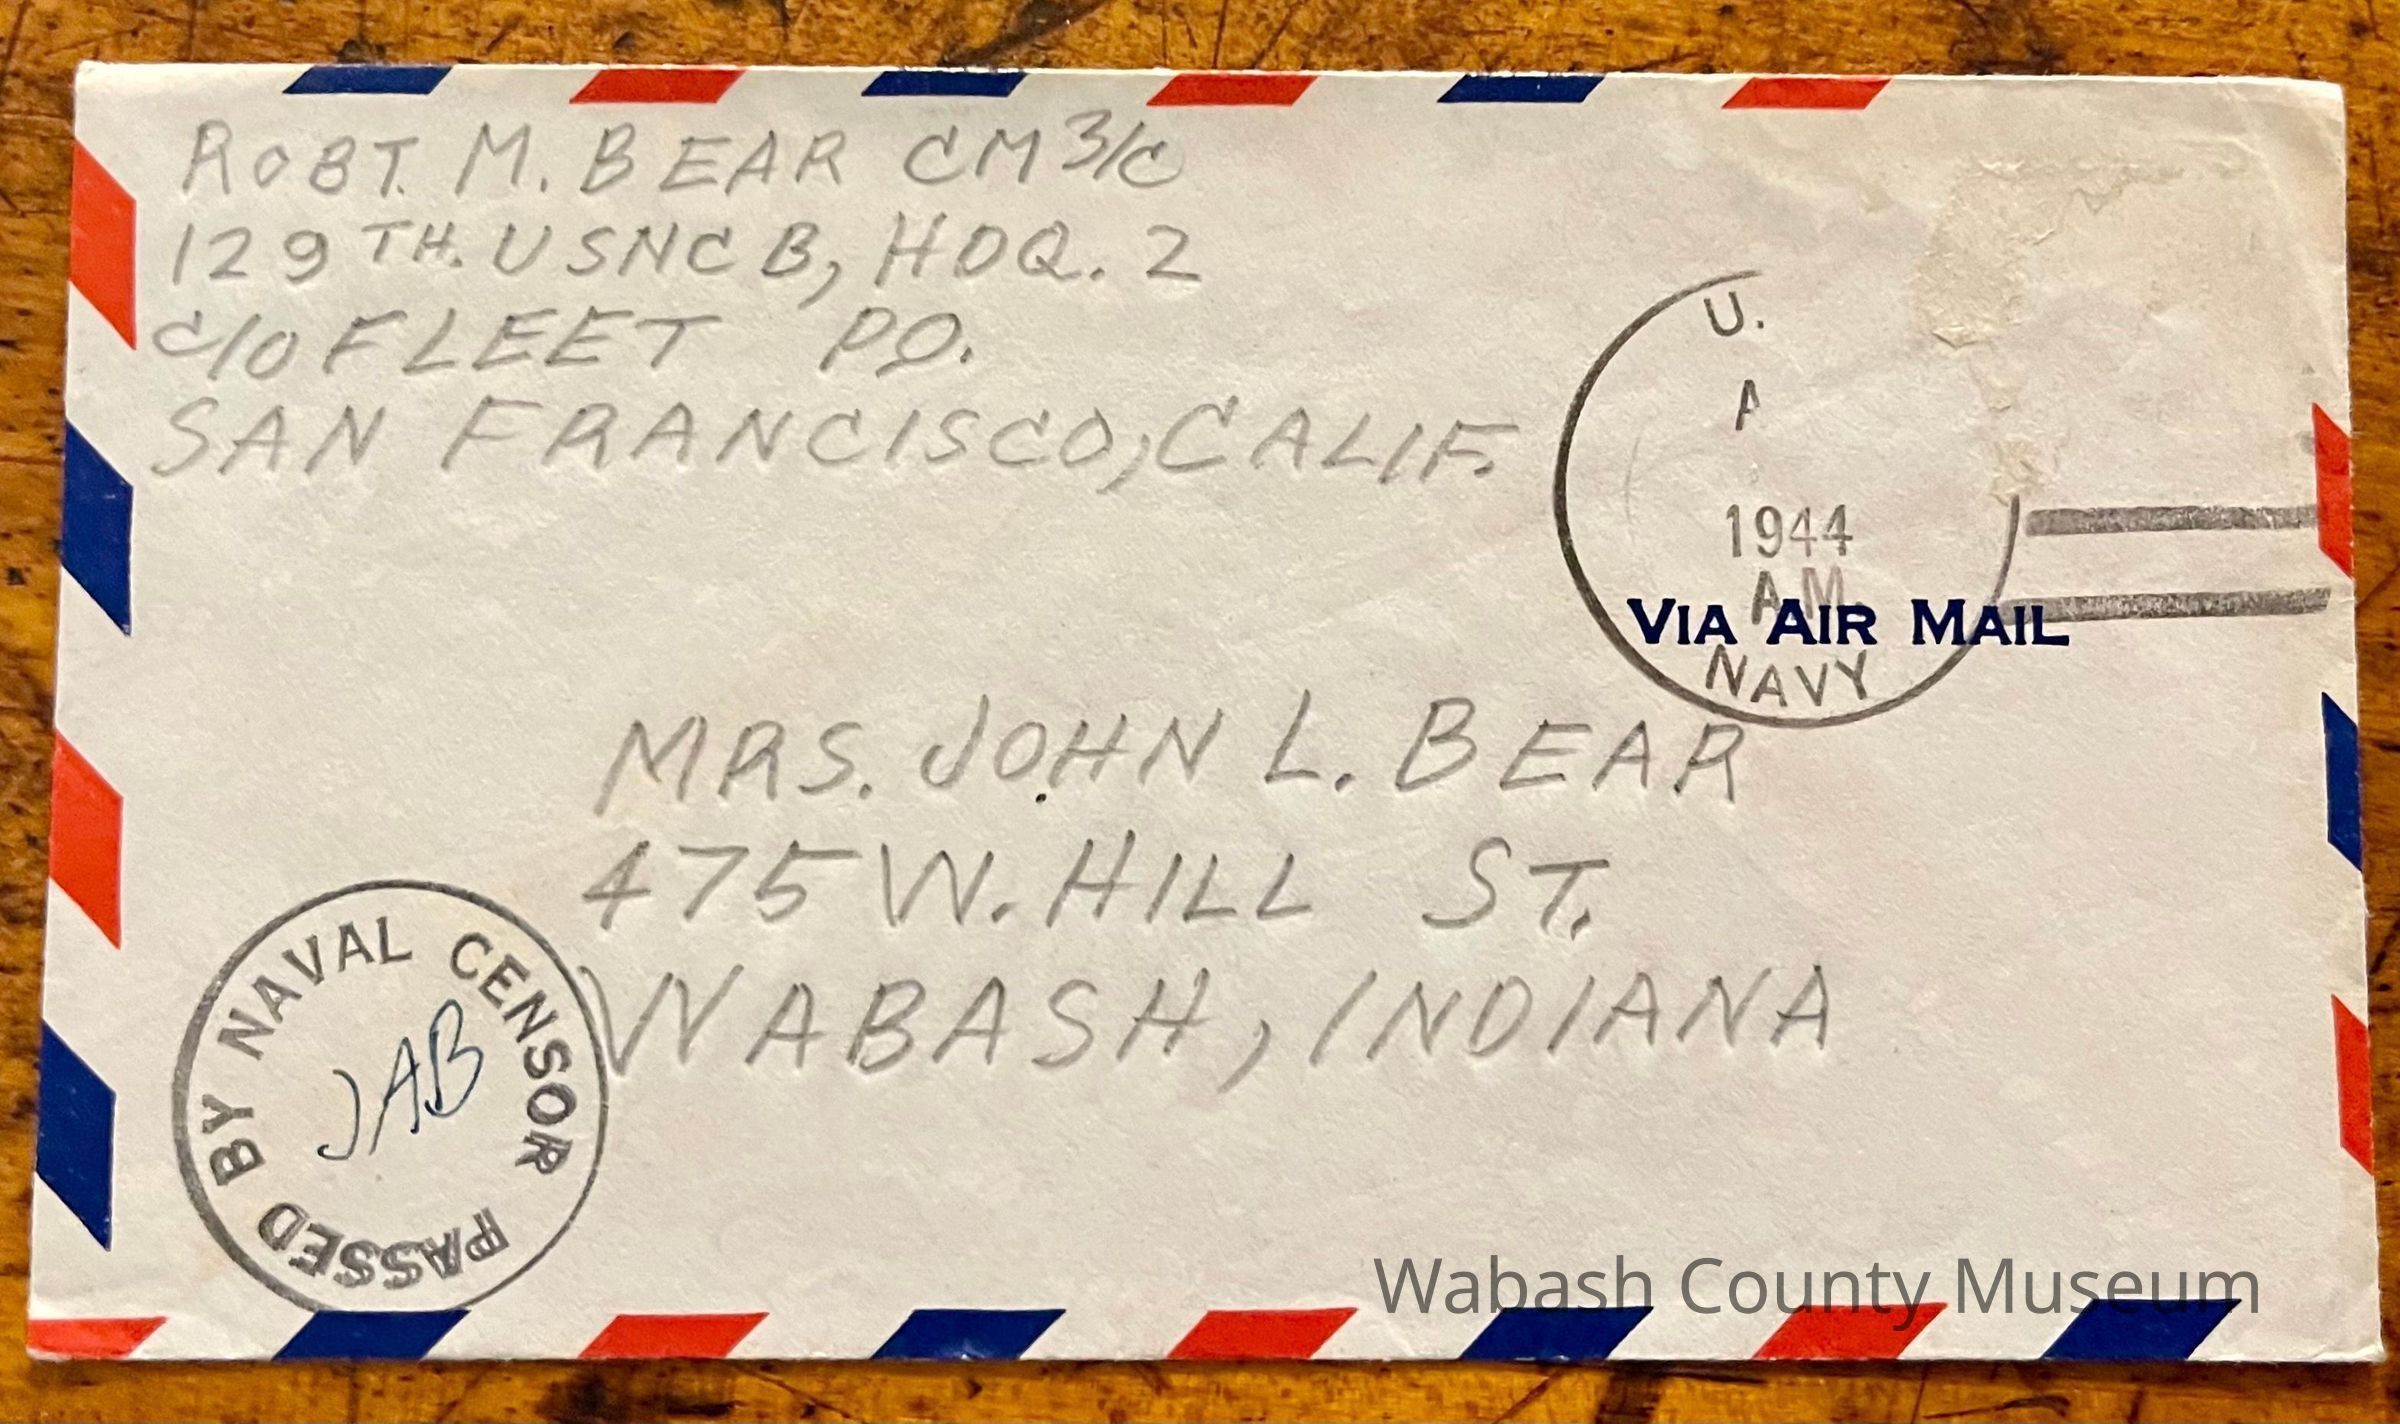 ROBT. M. BEAR CM 3/C
129TH. USNCB, HDQ. 2
C/O FLEET PO.
SAN FRANCISCO, CALIF.
U.
A
1944
AM
NAVY
VIA AIR MAIL
MRS. JOHN L. BEAR
475 W. HILL ST.
WABASH, INDIANA
PASSED BY NAVAL CENSOR
JAB
Wabash County Museum